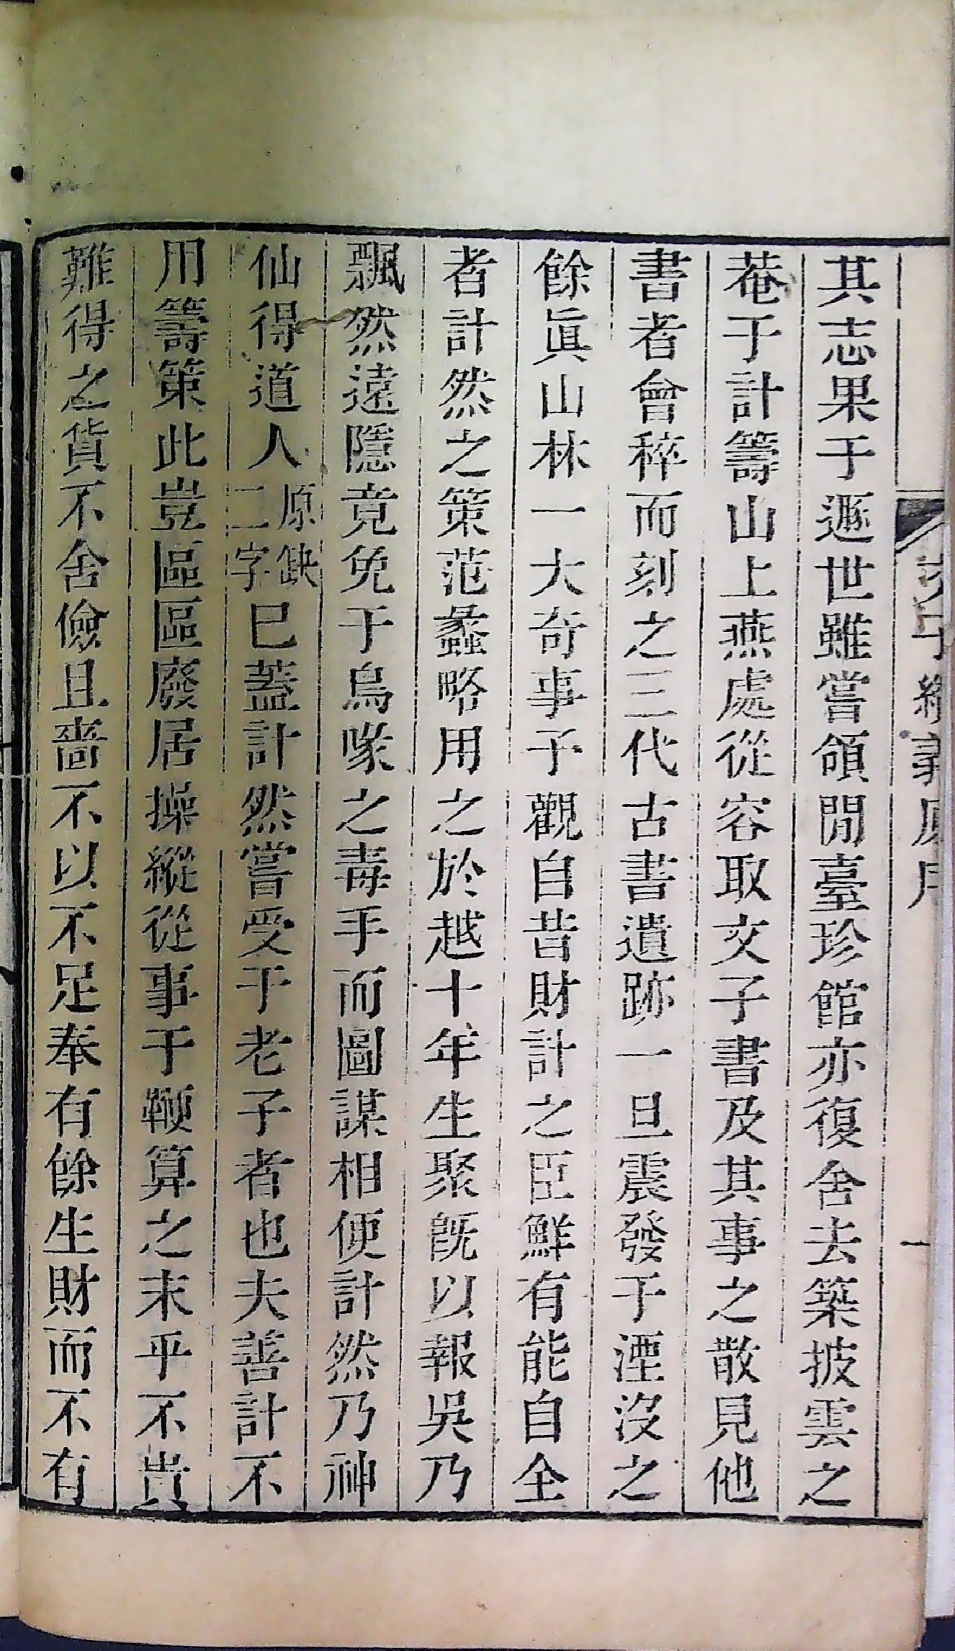 其志果于遯世雖嘗領閒臺珍館亦復舍去築披雲之
菴于計籌山上燕處從容取文子書及其事之散見他
書者會稡而刻之三代古書遺跡一旦震發于湮沒之
餘眞山林一大奇事予觀自昔財計之臣鮮有能自全
者計然之策范蠡略用之於越十年生聚旣以報吳乃
飄然遠隱竟免于鳥喙之毒手而圖謀相便計然乃神
仙得道人原缺二字巳蓋計然嘗受于老子者也夫善計不
用籌策此豈區區廢居操縱從事于鞭算之末乎不貴
難得之貨不舍儉且嗇不以不足奉有餘生財而不有